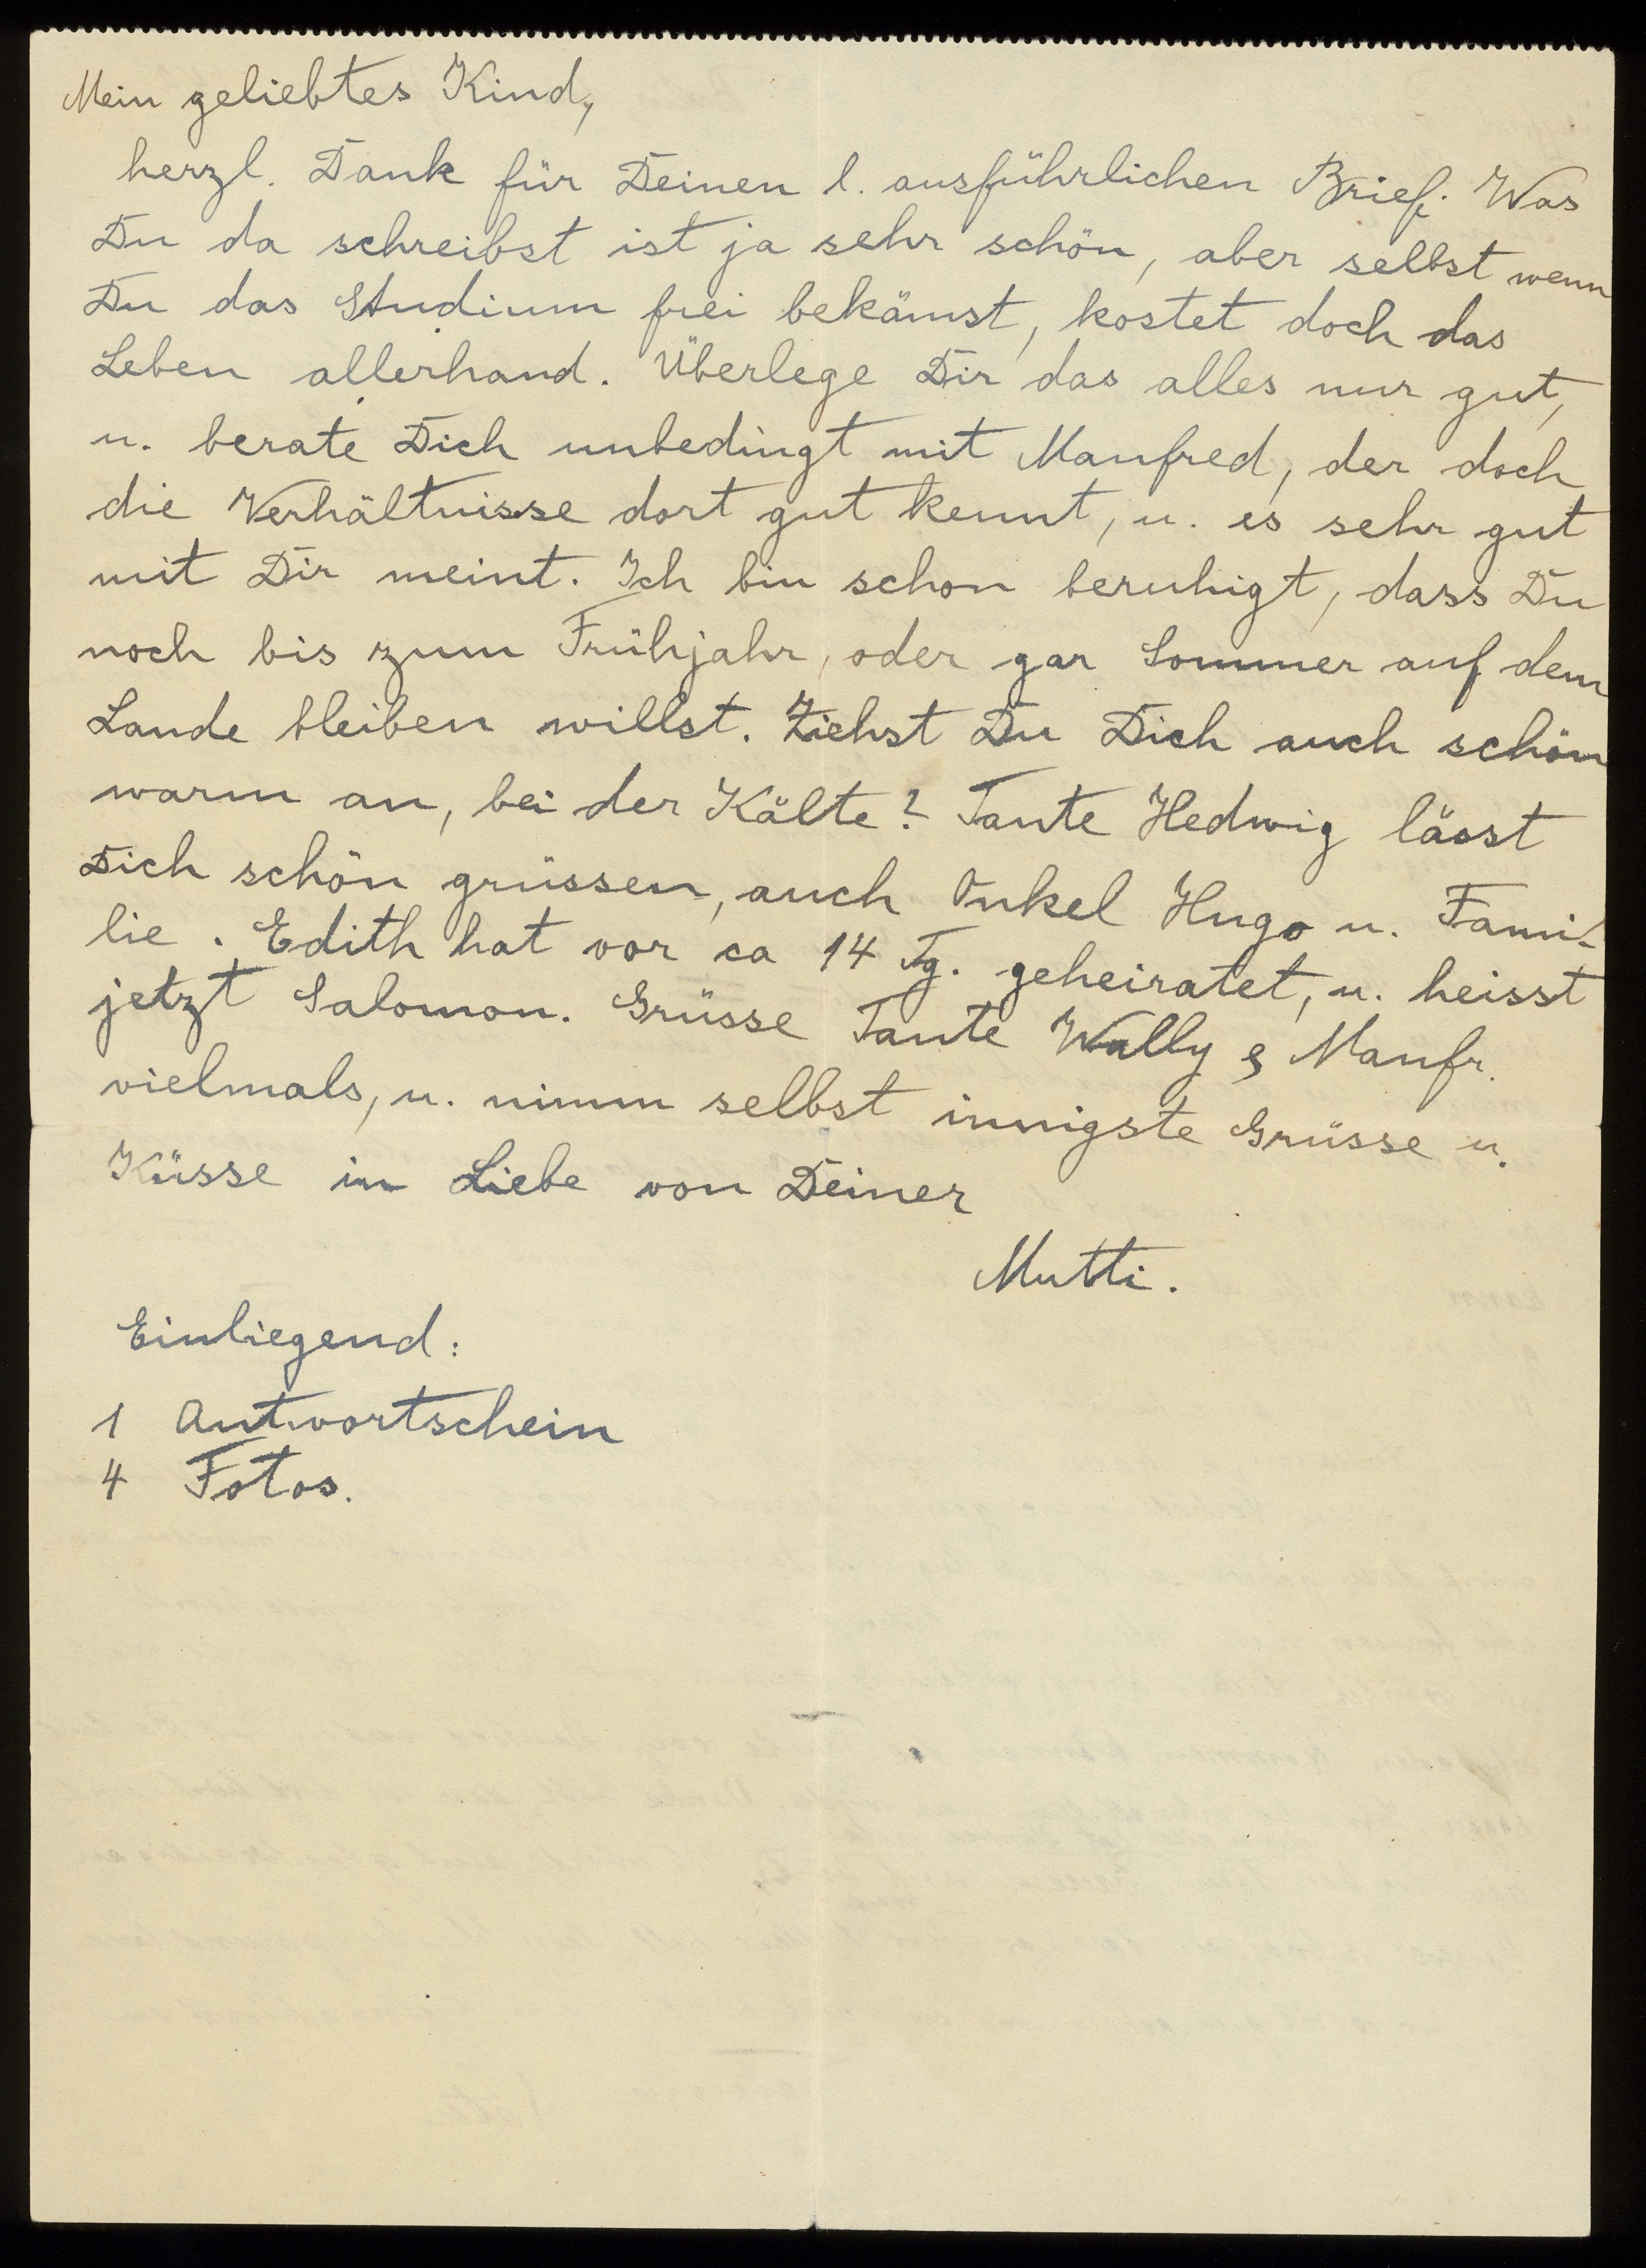 Mein geliebtes Kind,
herzl. Dank für Deinen l. ausführlichen Brief. Was
Du da schreibst ist ja sehr schön, aber selbst wenn
Du das Studium frei bekämst, kostet doch das
Leben allerhand. Überlege Dir das alles nur gut,
u. berate Dich unbedingt mit Manfred, der doch
die Verhältnisse dort gut kennt, u. es sehr gut
mit Dir meint. Ich bin schon beruhigt, dass Du
noch bis zum Frühjahr, oder gar Sommer auf dem
Lande bleiben willst. Ziehst Du Dich auch schön
warm an, bei der Kälte? Tante Hedwig lässt
Dich schön grüssen, auch Onkel Hugo u. Fami-
lie. Edith hat vor ca 14 Tg. geheiratet, u. heisst
jetzt Salomon. Grüsse Tante Wally & Manfr.
vielmals, u. nimm selbst innigste Grüsse u.
Küsse in Liebe von Deiner
Mutti.
Einliegend:
1 Antwortschein
4 Fotos.